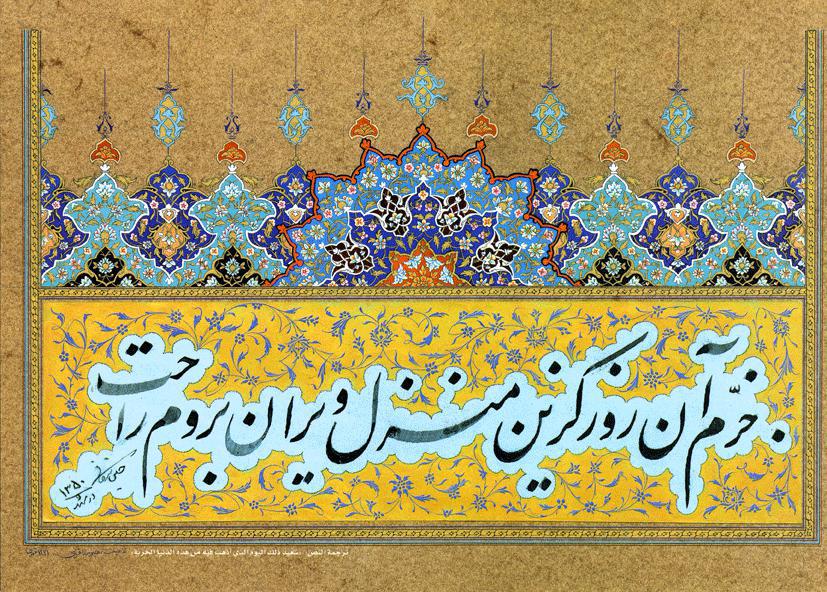 خرّم آن روز کزین منزل ویران بروم راحت
۱۳۵۰
ترجمة النص: «سعيد ذلك اليوم الذي اذهب فيه من هذه الدنيا الخربة»